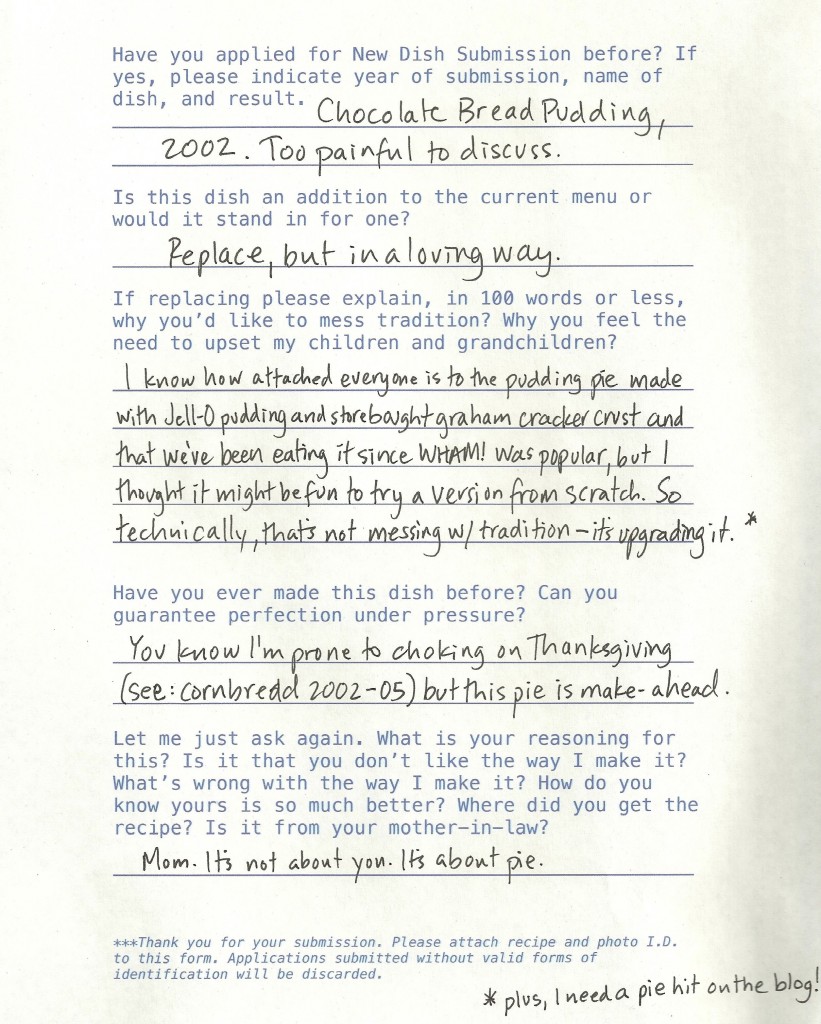 Have you applied for New Dish Submission before? If
yes, please indicate year of submission, name of
dish, and result.
Chocolate Bread Pudding,
2002. Too painful to discuss.
Is this dish an addition to the current menu or
would it stand in for one?
Replace, but in a loving way.
If replacing please explain, in 100 words or less,
why you'd like to mess tradition? Why you feel the
need to upset my children and grandchildren?
I know how attached everyone is to the pudding pie made
with Jell-O pudding and storebought graham cracker crust and
that we've been eating it since WHAM! was popular, but I
thought it might be fun to try a version from scratch. So
technically, that's not messing w/ tradition - it's upgrading it. *
Have you ever made this dish before? Can you
guarantee perfection under pressure?
You know I'm prone to choking on Thanksgiving
(see: cornbredd 2002-05) but this pie is make-ahead.
Let me just ask again. What is your reasoning for
this? Is it that you don't like the way I make it?
What's wrong with the way I make it? How do you
know yours is so much better? Where did you get the
recipe? Is it from your mother-in-law?
Mom. It's not about you. It's about pie.
***Thank you for your submission. Please attach recipe and photo I.D.
to this form. Applications submitted without valid forms of
identification will be discarded.
* plus, I need a pie hit on the blog!